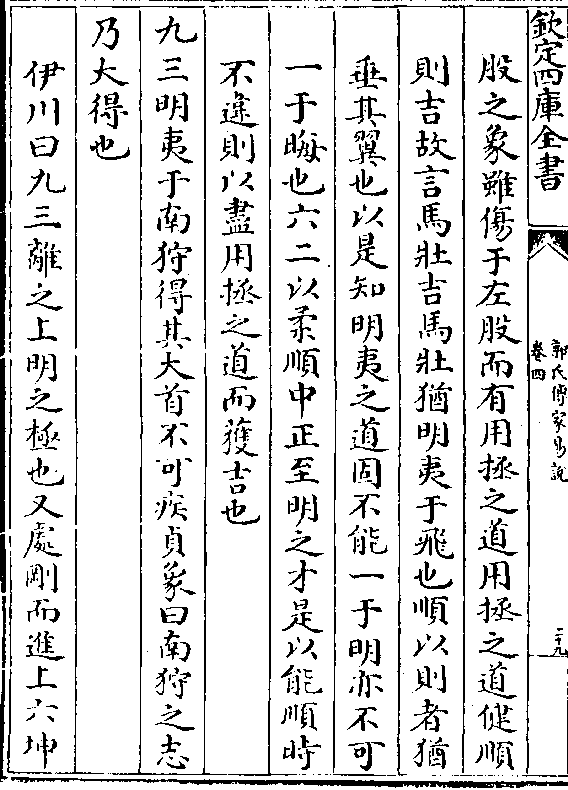 欽定四庫全書
郭氏傳家易說
卷四
二十九
股之象雖傷于左股而有用拯之道用拯之道健順
則吉故言馬壯吉馬壯猶明夷于飛也順以則者猶
垂其翼也以是知明夷之道固不能一于明亦不可
一于晦也六二以柔順中正至明之才是以能順時
不違則以盡用拯之道而獲吉也
九三明夷于南狩得其大首不可疾貞象曰南狩之志
乃大得也
伊川曰九三離之上明之極也又處剛而進上六坤